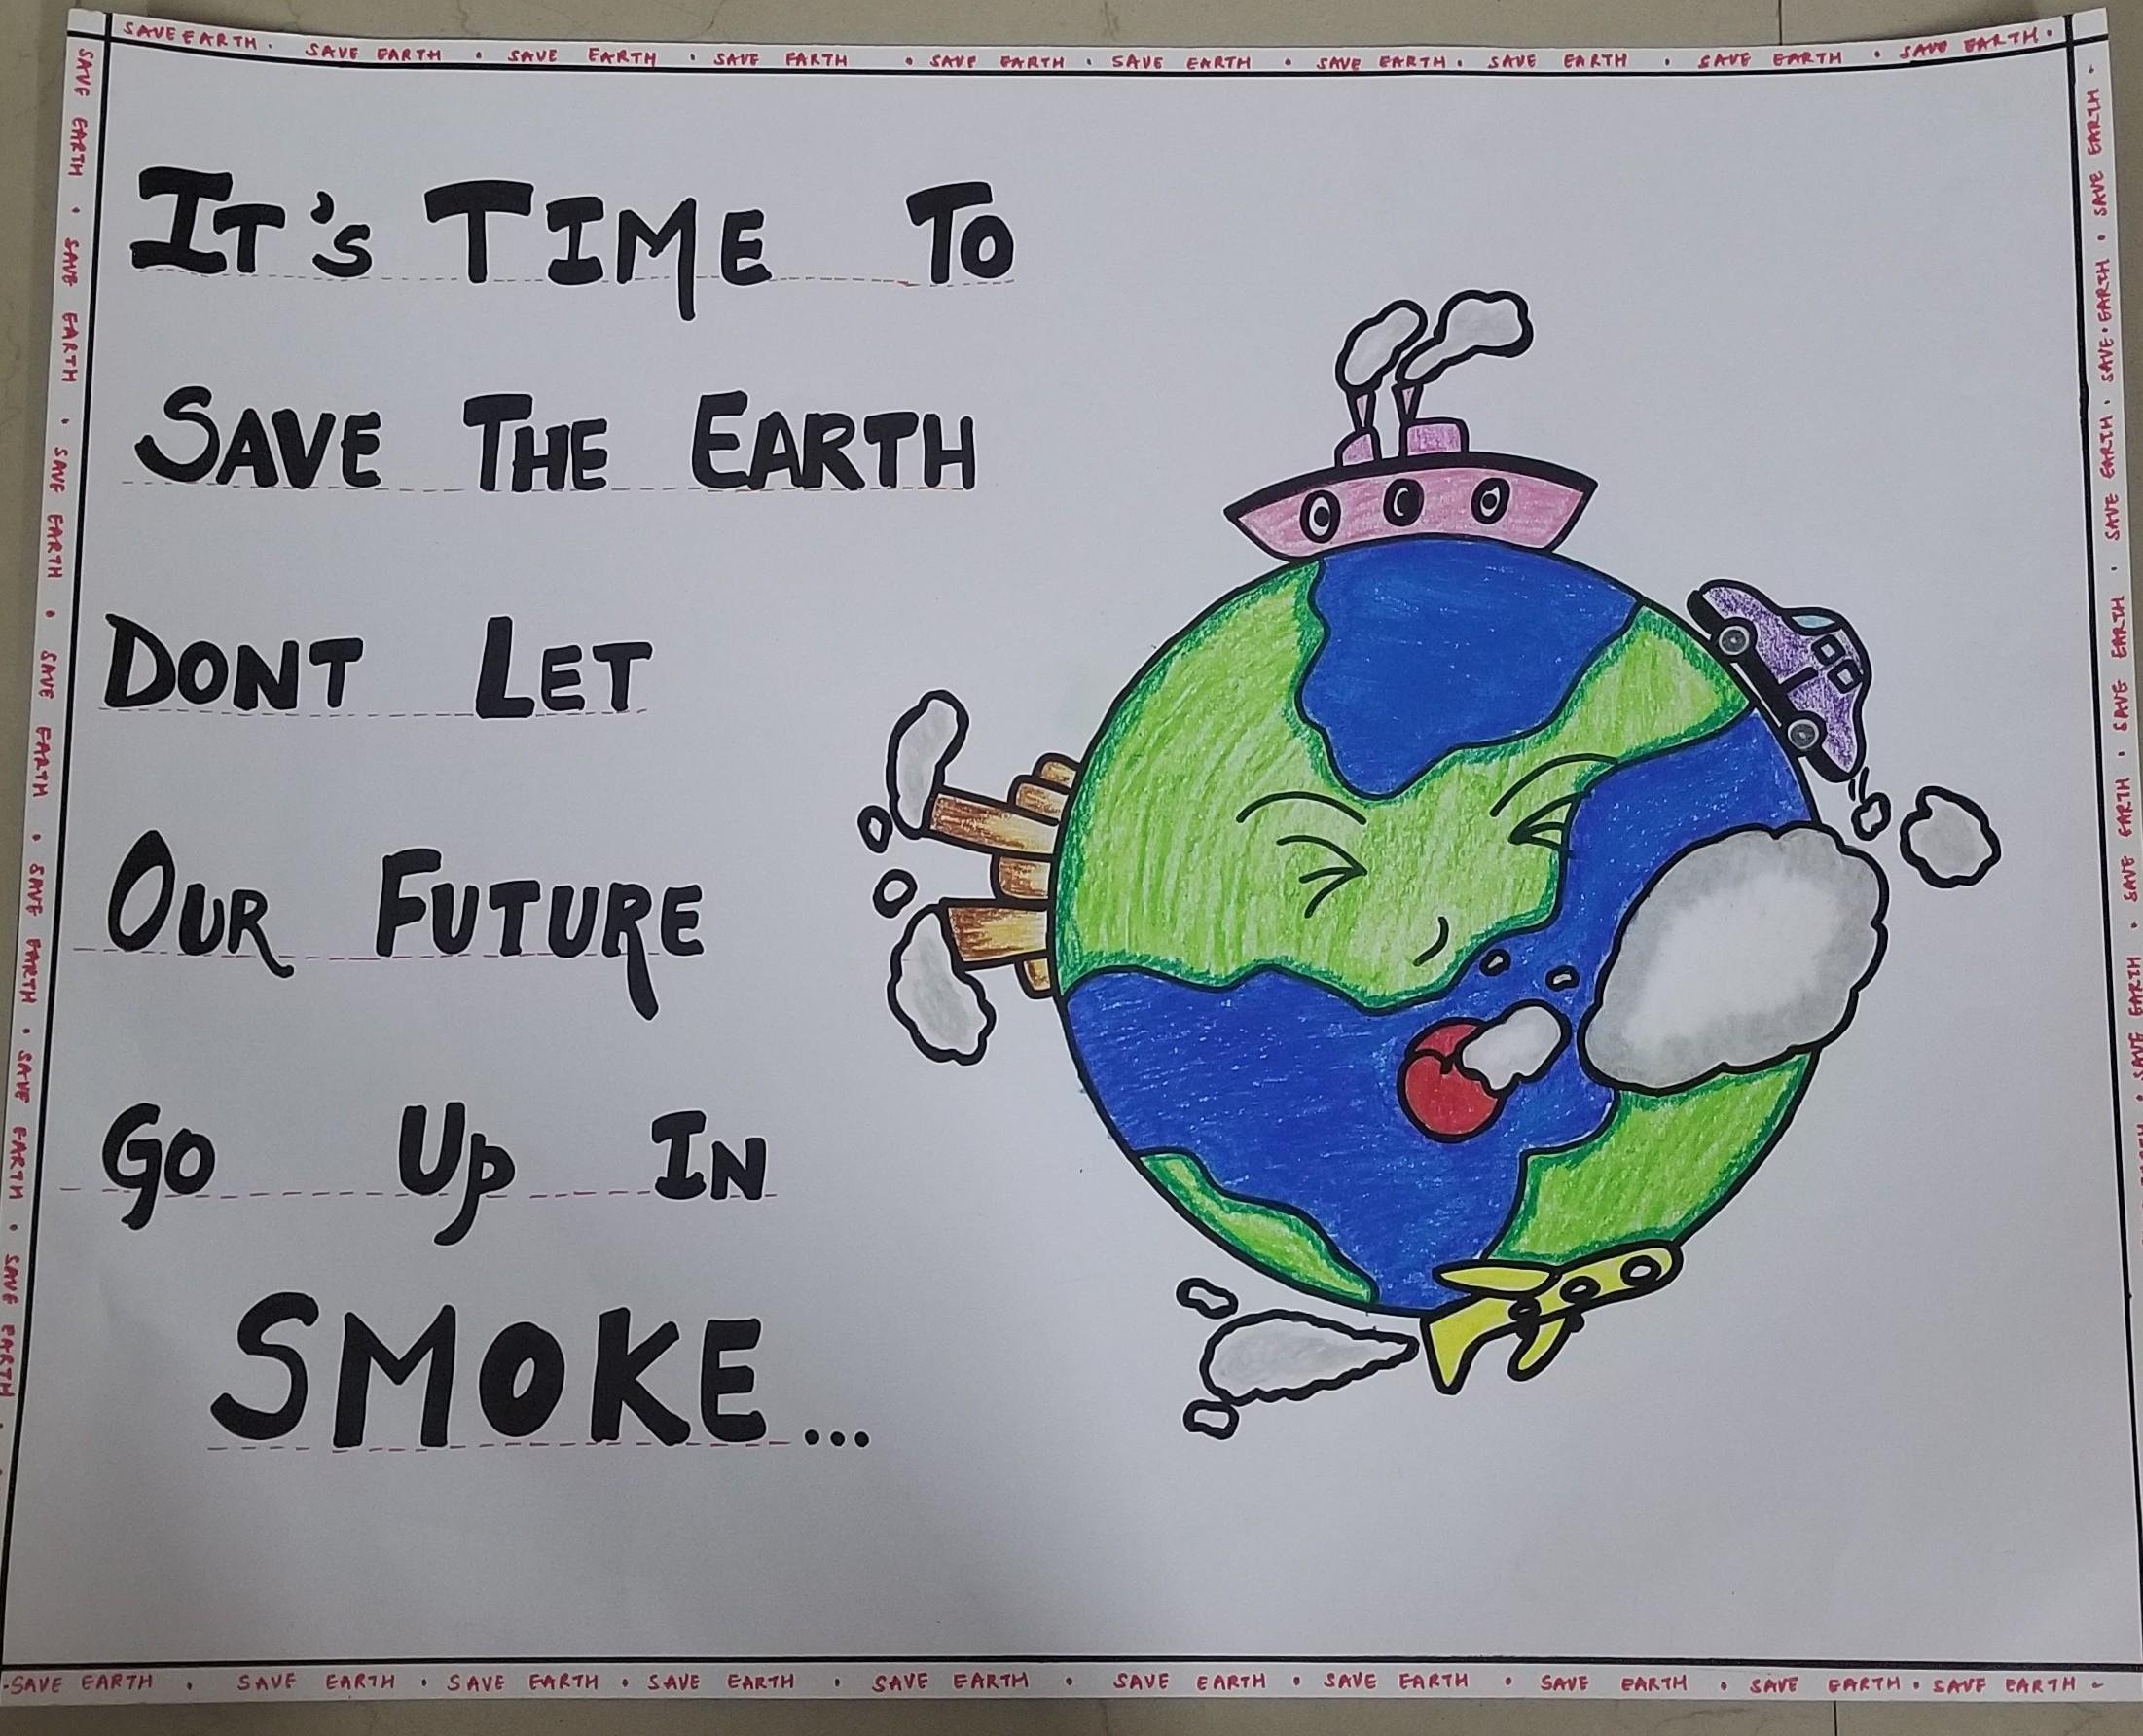 SAVE EARTH. SAVE EARTH • SAVE EARTH • SAVE EARTH • SAVE EARTH • SAVE EARTH • SAVE EARTH • SAVE EARTH • SAVE EARTH • SAVE EARTH •
SAVE EARTH • SAVE EARTH • SAVE EARTH • SAVE EARTH • SAVE EARTH • SAVE EARTH • SAVE EARTH
IT'S TIME TO
SAVE THE EARTH
DONT LET
OUR FUTURE
GO UP IN
SMOKE...
SAVE EARTH • SAVE EARTH • SAVE EARTH • SAVE EARTH • SAVE EARTH • SAVE EARTH • SAVE EARTH
• SAVE EARTH • SAVE EARTH • SAVE EARTH • SAVE EARTH • SAVE EARTH • SAVE EARTH • SAVE EARTH • SAVE EARTH • SAVE EARTH • SAVE EARTH